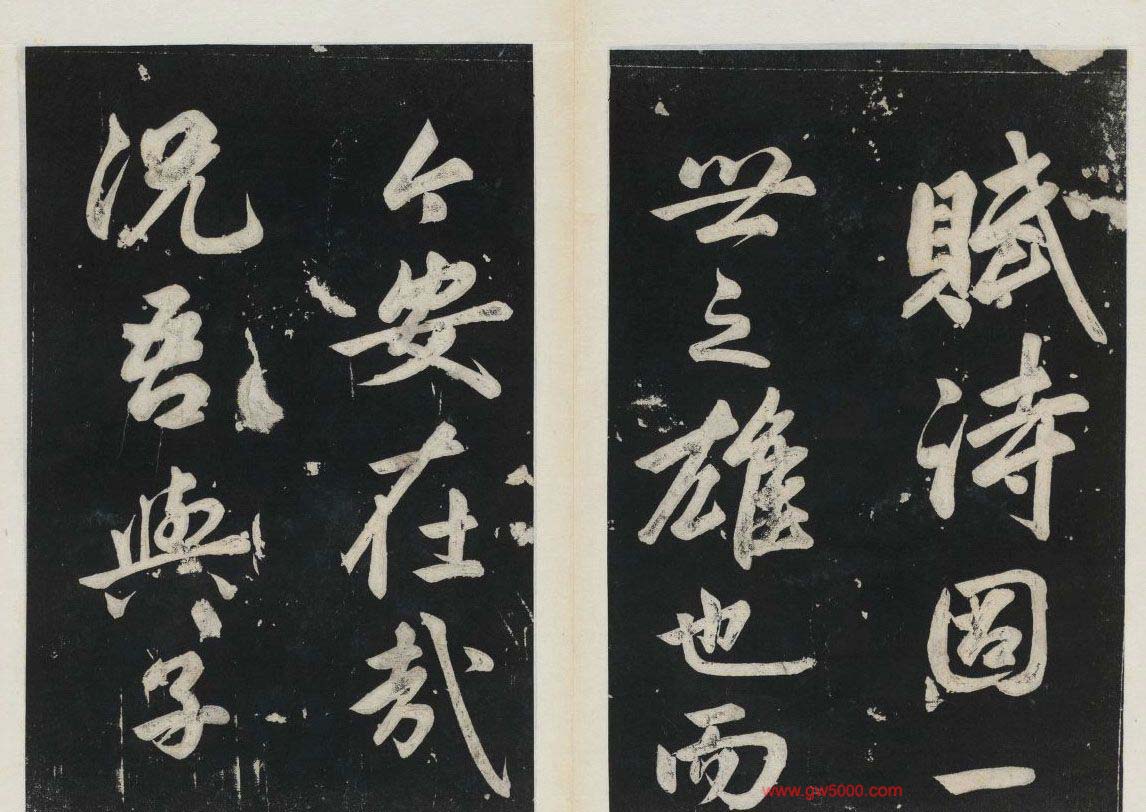 賦詩固一
世之雄也而
今安在哉
況吾與子
www.gw5000.com